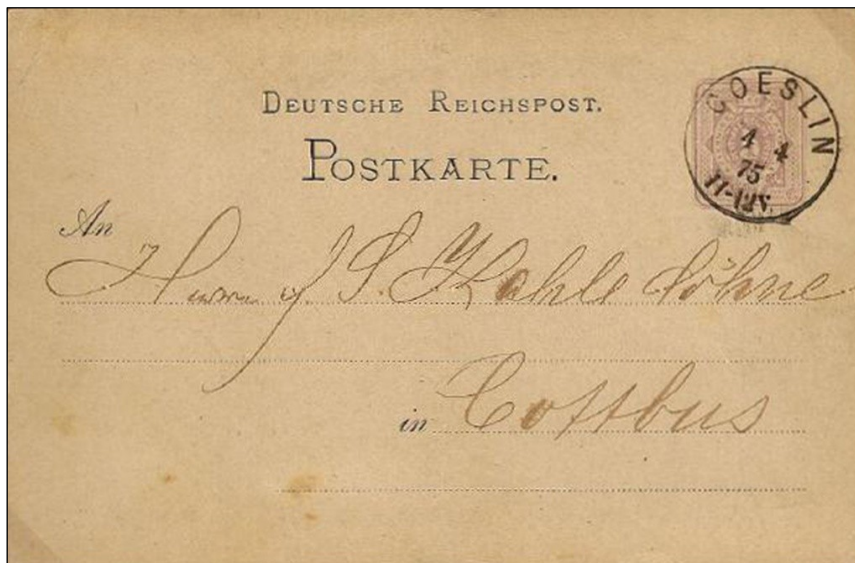 DEUTSCHE REICHSPOST.
POSTKARTE.
COESLIN
4 4
75
11-12V.
An
Herrn J. S. Kahle Söhne
in Cottbus